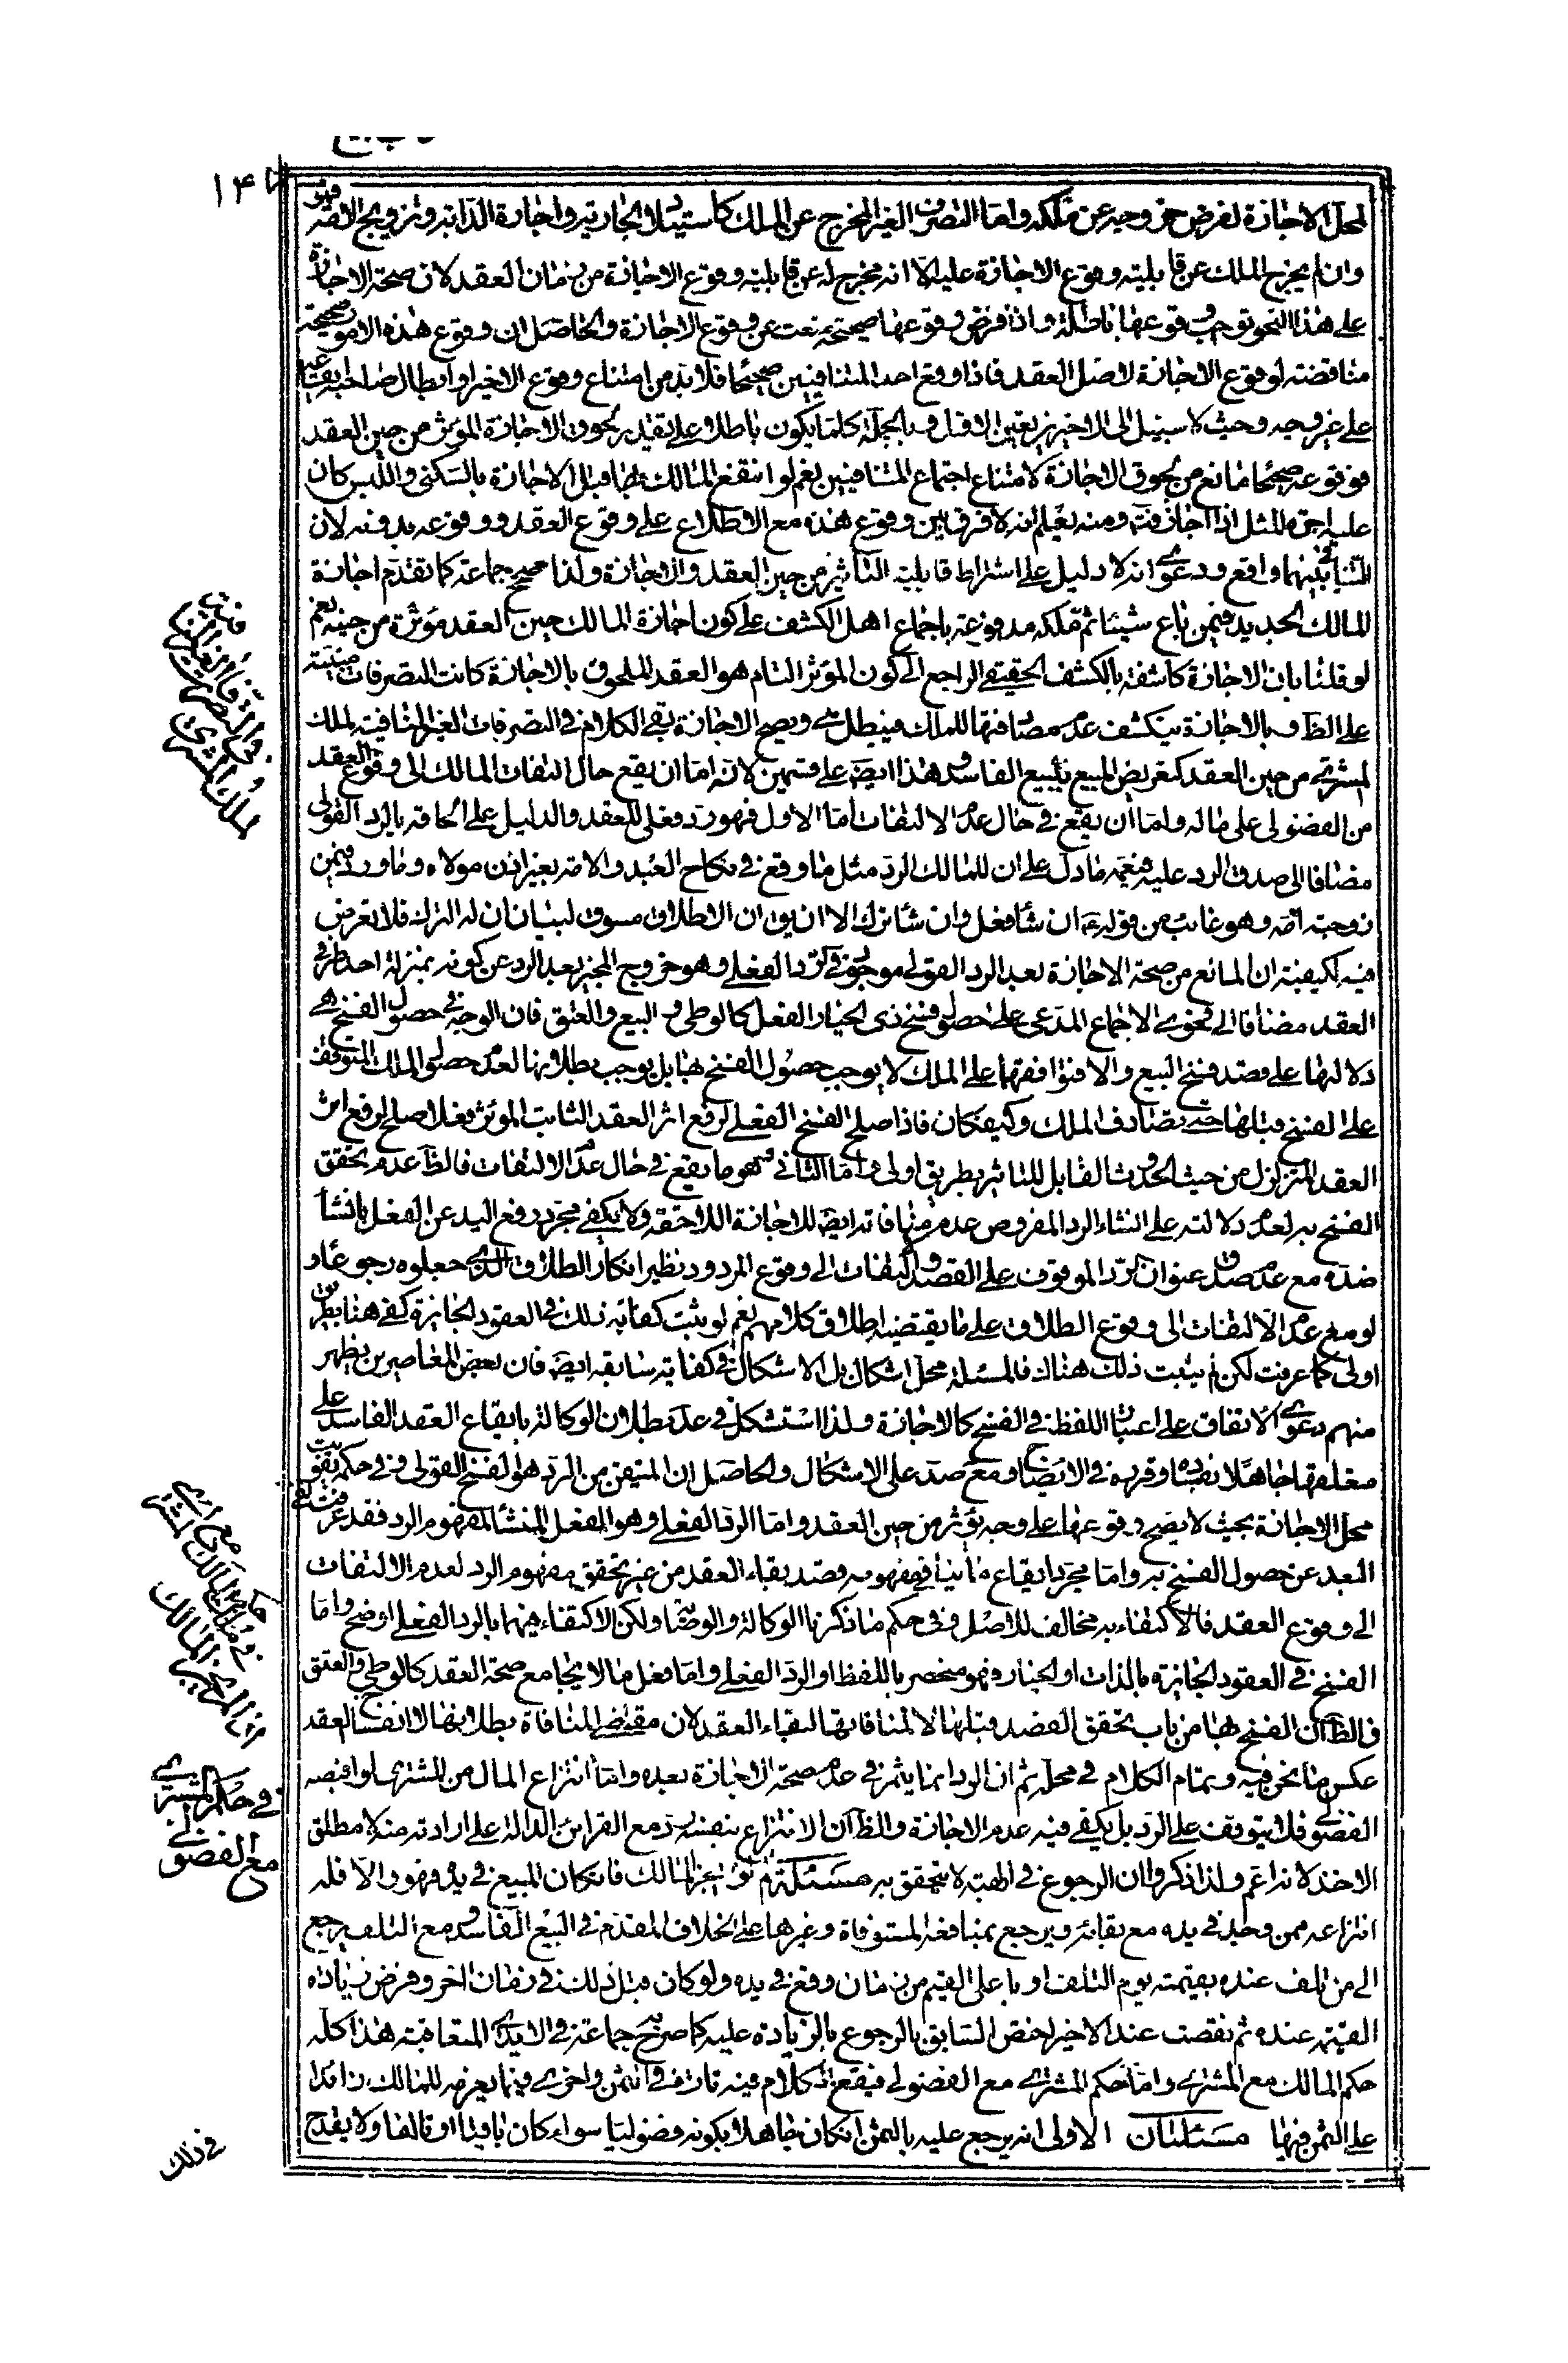 ١٤٥
لمحل الاجازة لفرض خروجه عن ملكه واما التصرف الغير المخرج عن الملك كاستيلاد الجارية واجارة الدابة وتزويج الامة فهو
وان لم يخرج الملك عن قابلية وقوع الاجازة عليه الا انه مخرج له عن قابلية وقوع الاجازة من زمان العقد لان صحة الاجازة
على هذا النحو توجب وقوعها باطلة واذا فرض وقوعها صحيحة منعت عن وقوع الاجازة والحاصل ان وقوع هذه الامور صحيحة
مناقضة لوقوع الاجازة لاصل العقد فاذا وقع احد المتنافيين صحيحا فلا بد من امتناع وقوع الاخير او ابطال صاحبه او ايقاعه
على غير وجهه وحيث لا سبيل الى الاخيرين تعين الاول وبالجملة كلما يكون باطلا على تقدير لحوق الاجازة المؤثرة من حين العقد
فوقوعه صحيحا مانع من لحوق الاجازة لامتناع اجتماع المتنافيين نعم لو انتفع المالك بها قبل الاجازة بالسكنى واللبس كان
عليه اجرة المثل اذا اجاز فتامل ومنه يعلم انه لا فرق بين وقوع هذه مع الاطلاع على وقوع العقد ووقوعه بدونه لان
التنافي بينهما واقع ودعوى انه لا دليل على اشتراط قابلية التأثير من حين العقد في الاجازة ولذا صحح جماعة كما تقدم اجازة
المالك الجديد فيمن باع شيئا ثم ملكه مدفوعة باجماع اهل الكشف على كون اجازة المالك حين العقد مؤثرة من حينه نعم
لو قلنا بان الاجازة كاشفة بالكشف الحقيقي الراجع الى كون المؤثر التام هو العقد الملحوق بالاجازة كانت التصرفات مبنية
على الظاهر وبالاجازة ينكشف عدم مصادفتها للملك فيبطل هي ويصح الاجازة بقى الكلام في التصرفات الغير المنافية لملك
المشترى من حين العقد كتعريض المبيع للبيع والبيع الفاسد وهذا ايضا على قسمين لانه اما ان يقع حال التفات المالك الى وقوع العقد
من الفضولى على ماله واما ان يقع في حال عدم الالتفات اما الاول فهو رد فعلى للعقد والدليل على الحاقه بالرد القولى
مضافا الى صدق الرد عليه فيعمه ما دل على ان للمالك الرد مثل ما وقع في نكاح العبد والامة بغير اذن مولاه وما ورد فيمن
زوجته امه وهو غائب من قوله ع ان شاء فعل وان شاء ترك الا ان يق ان الاطلاق مسوق لبيان ان له الترك فلا تعرض
فيه لكيفية ان المانع من صحة الاجازة بعد الرد القولى موجود في الرد الفعلي وهو خروج المجيز بعد الرد عن كونه بمنزلة احد طرفي
العقد مضافا الى فحوى الاجماع المدعى على حصول فسخ ذى الخيار بالفعل كالوطى والبيع والعتق فان الوجه في حصول الفسخ هي
دلالتها على قصد فسخ البيع والا فتوقفها على الملك لا يوجب حصول الفسخ بها بل يوجب بطلانها لعدم حصول الملك المتوقف
على الفسخ قبلها حتى تصادف الملك وكيف كان فاذا صلح الفسخ الفعلى لرفع اثر العقد الثابت المؤثر فعلا صلح لرفع اثر
العقد المتزلزل من حيث الحدوث القابل للتاثير بطريق اولى واما الثاني وهو ما يقع في حال عدم الالتفات فالظاهر عدم تحقق
الفسخ به لعدم دلالته على انشاء الرد والمفروض عدم منافاته ايضا للاجازة اللاحقة ولا يكفي مجرد رفع اليد عن الفعل بانشاء
ضده مع عدم صدق عنوان الرد الموقوف على القصد والالتفات الى وقوع المردود نظير انكار الطلاق الذي جعلوه رجوعا و
لو مع عدم الالتفات الى وقوع الطلاق على ما يقتضيه اطلاق كلامهم نعم لو ثبت كفاية ذلك في العقود الجائزة كفى هنا بطريق
اولى كما عرفت لكن لم يثبت ذلك هناك فالمسئلة محل اشكال بل الاشكال في كفاية سابقه ايضا فان بعض المعاصرين يظهر
منهم دعوى الاتفاق على اعتبار اللفظ في الفسخ كالاجازة ولذا استشكل في عد بطلان الوكالة بايقاع العقد الفاسد على
متعلقها جاهلا بفساده وقرره في الايضاح وجامع صد على الاشكال والحاصل ان المتيقن من الرد هو الفسخ القولى وفي حكمه تفويت
محل الاجازة بحيث لا يصح وقوعها على وجه يؤثر من حين العقد واما الرد الفعلي وهو الفعل المنشأ به مفهوم الرد فقد عرفت نفى
البعد عن حصول الفسخ به واما مجرد ايقاع ما ينافي مفهومه قصد بقاء العقد من غير تحقق مفهوم الرد لعدم الالتفات
الى وقوع العقد فالاكتفاء به مخالف للاصل وفي حكم ما ذكرنا الوكالة والوصاية ولكن الاكتفاء فيهما بالرد الفعلي اوضح واما
الفسخ في العقود الجائزة بالذات او الخيار فهو منحصر باللفظ او الرد الفعلي واما فعل ما لا يجامع صحة العقد كالوطى والعتق
فالظاهر ان الفسخ بها من باب تحقق القصد قبلها لا لمنافاتها لبقاء العقد لان مقتضى المنافاة بطلانها لا انفساخ العقد
عكس ما نحن فيه وتمام الكلام في محله ثم ان الرد انما يثمر في عدم صحة الاجازة بعده واما انتزاع المال من المشترى لو اقبضه
الفضولى فلا يتوقف على الرد بل يكفي فيه عدم الاجازة والظاهر ان الانتزاع بنفسه رد مع القرائن الدالة على ارادته منه لا مطلق
الاخذ لانه اعم ولذا ذكروا ان الرجوع في الهبة لا يتحقق به مسئلة لو لم يجز المالك فان كان المبيع في يده فهو والا فله
انتزاعه ممن وجده في يده مع بقائه ويرجع بمنافعه المستوفاة وغيرها على الخلاف المتقدم في البيع الفاسد ومع التلف يرجع
الى من تلف عنده بقيمته يوم التلف او باعلى القيم من زمان وقع في يده ولو كان قبل ذلك في ضمان اخر وفرض زيادة
القيمة عنده ثم نقصت عند الاخير اختص السابق بالرجوع بالزيادة عليه كما صرح به جماعة في الايدى المتعاقبة هذا كله
حكم المالك مع المشترى واما حكم المشترى مع الفضولى فيقع الكلام فيه تارة في الثمن واخرى فيما يغرمه للمالك زائدا
على الثمن فهنا مسئلتان الاولى انه يرجع عليه بالثمن ان كان جاهلا بكونه فضوليا سواء كان باقيا او تالفا ولا يقدح
في حكم المشترى
مع الفضولى
في ذلك